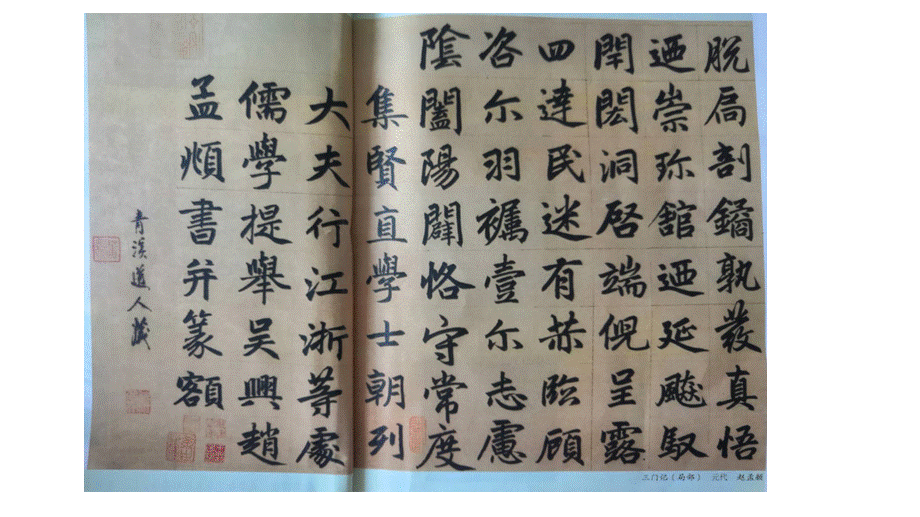 脫扃剖鐍孰發真悟
迺崇珎館迺延飈馭
閈閎洞啓端倪呈露
四達民迷有赫臨顧
咨尔羽襹壹尔志慮
陰闔陽闢恪守常度
集賢直學士朝列
大夫行江浙等處
儒學提舉吳興趙
孟頫書并篆額
青溪道人藏
三门记(局部) 元代 赵孟頫